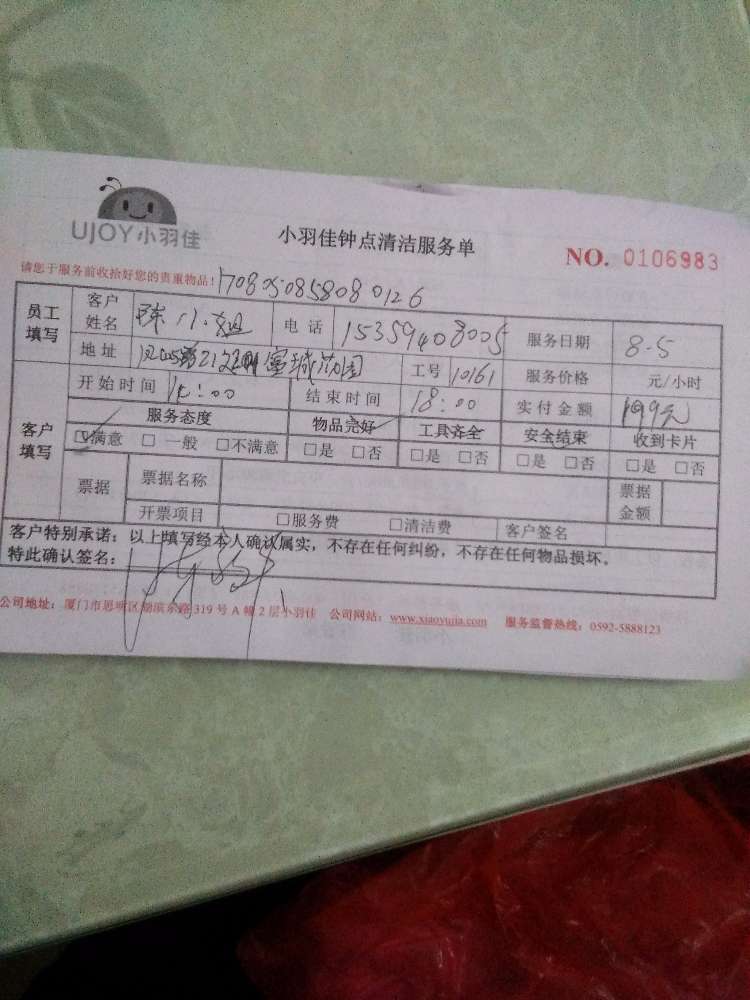 UJOY小羽佳
小羽佳钟点清洁服务单
NO. 0106983
请您于服务前收拾好您的贵重物品! 1708050858080126
员工填写 客户姓名 陈小姐 电话 15359408005 服务日期 8.5
地址 富城花园 工号 10161 服务价格 元/小时
客户填写 开始时间 :00 结束时间 18:00 实付金额 199元
服务态度 物品完好 工具齐全 安全结束 收到卡片
☑满意 □ 一般 □不满意 □是 □否 □是 □否 □是 □否 □是 □否
票据 票据名称 票据金额
开票项目 □服务费 □清洁费 客户签名
客户特别承诺：以上填写经本人确认属实，不存在任何纠纷，不存在任何物品损坏。
特此确认签名：
公司地址：厦门市思明区湖滨东路 319 号 A 幢 2 层小羽佳 公司网站：www.xiaoyujia.com 服务监督热线：0592-5888123